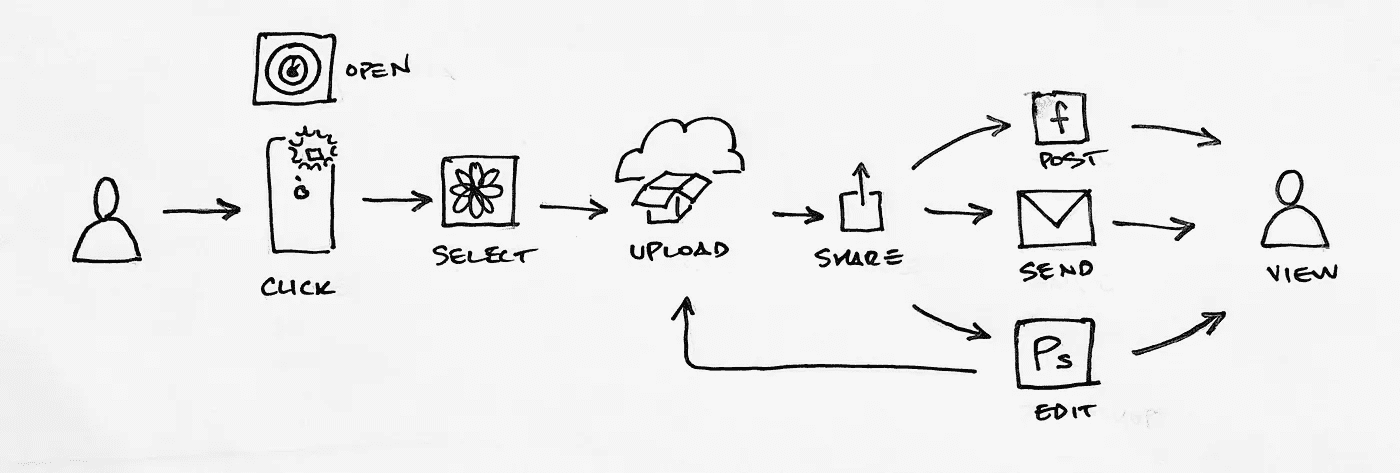 OPEN
CLICK
SELECT
UPLOAD
SHARE
f
POST
SEND
Ps
EDIT
VIEW